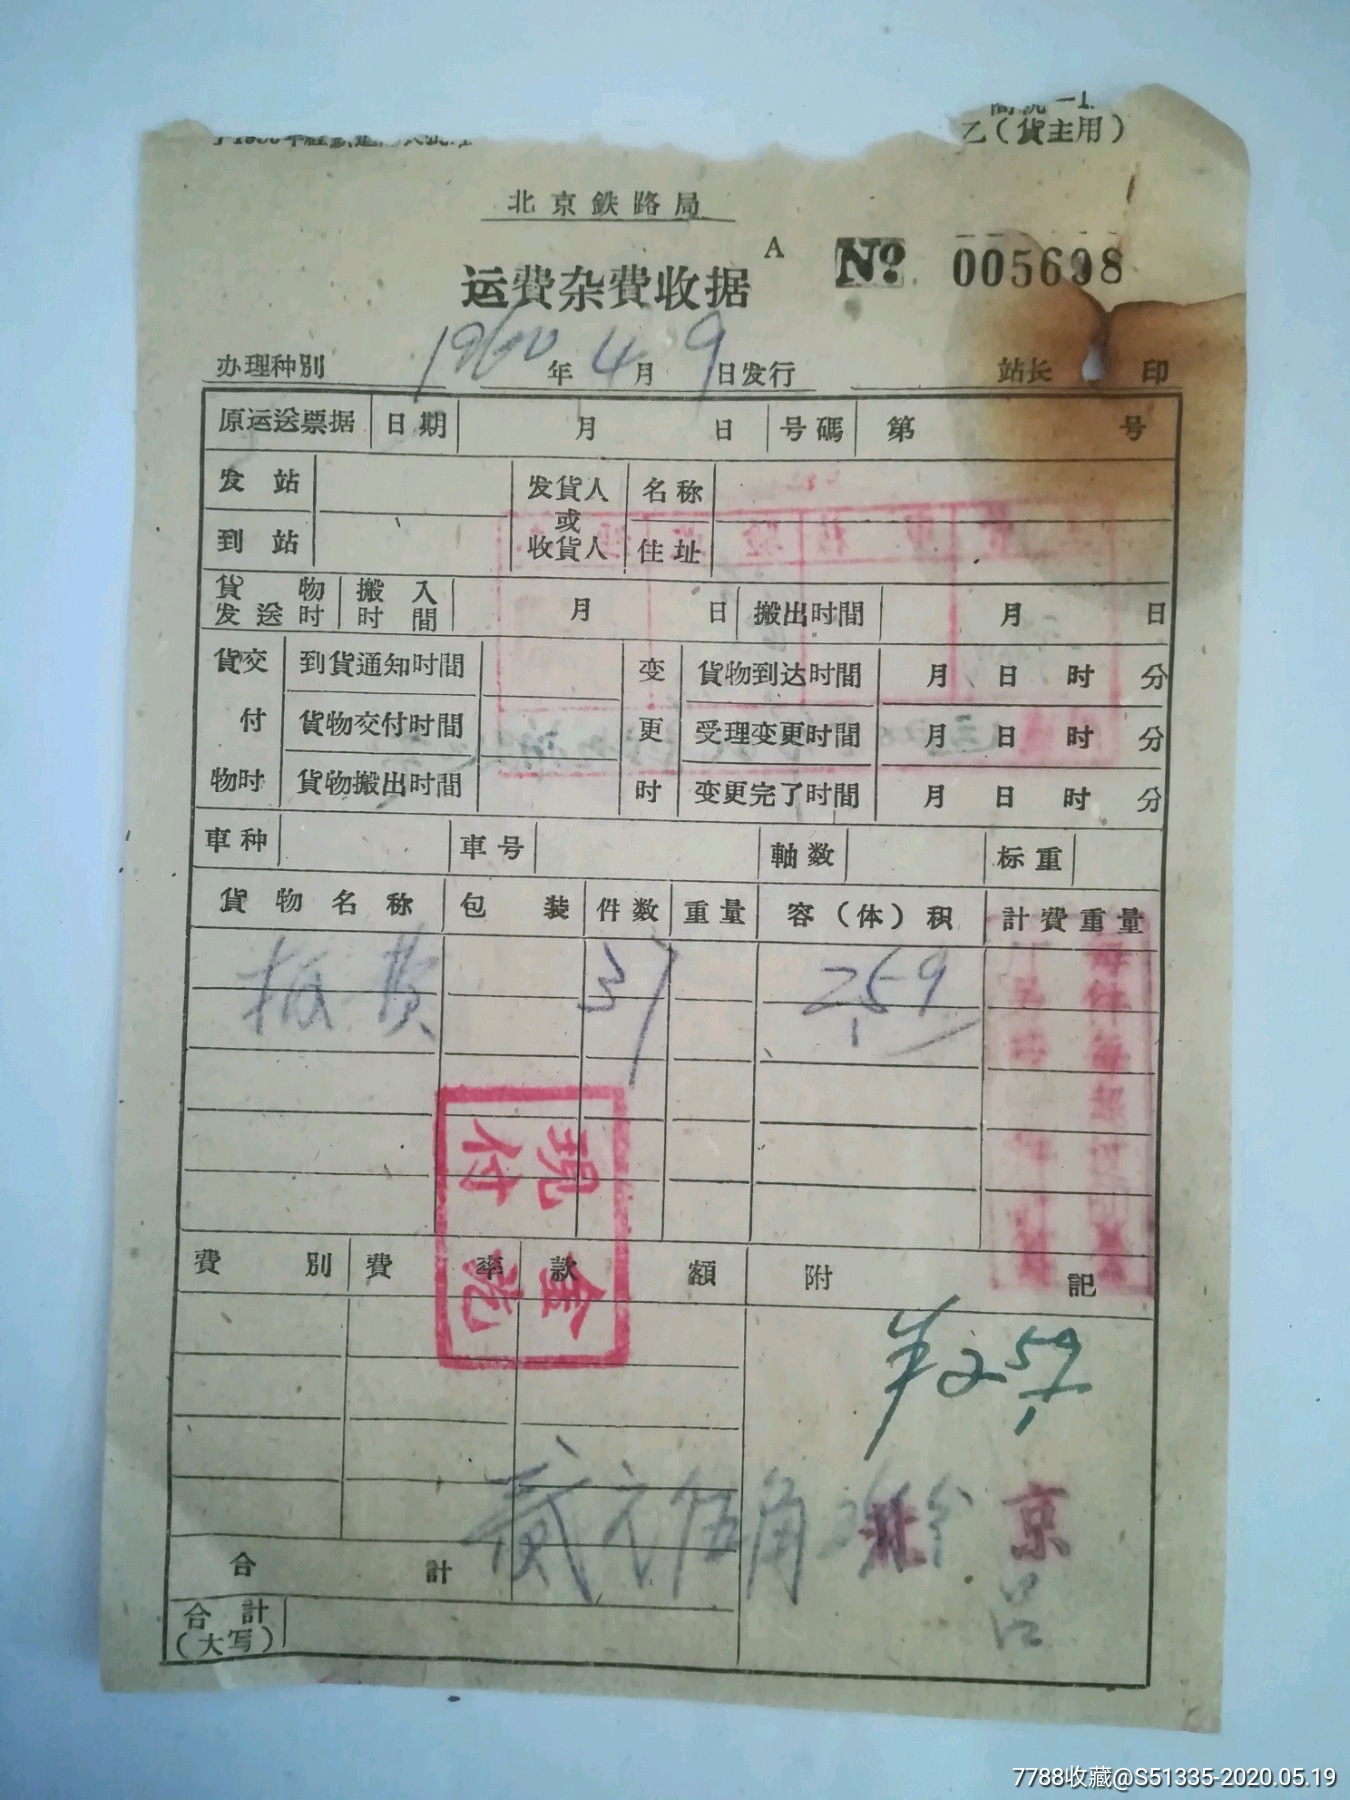 乙（貨主用）
北京鉄路局
A
运費杂費收据
№ 005698
办理种別 1960年4月9日发行 站长 印
原运送票据 日期 月 日 号碼 第 号
发站 发貨人 名称
或
到站 收貨人 住址
貨物 搬入 月 日 搬出时間 月 日
发送时 时間
貨交 到貨通知时間 变 貨物到达时間 月 日 时 分
付 貨物交付时間 更 受理变更时間 月 日 时 分
物时 貨物搬出时間 时 变更完了时間 月 日 时 分
車种 車号 軸数 标重
貨物名称 包装 件数 重量 容（体）积 計費重量
搬費 31 259
現金
付讫
費別 費率 款額 附記
¥2.59
貳元伍角 分
北京
合計
合計
（大写）
7788收藏@S51335-2020.05.19